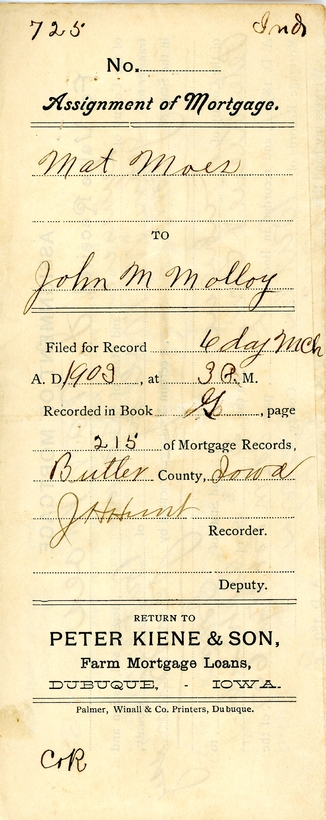 725 Ind
No.
Assignment of Mortgage.
Mat Moes
TO
John M Molloy
Filed for Record 6 day Mch
A. D. 1903, at 3 P. M.
Recorded in Book G, page
215 of Mortgage Records,
Butler County, Iowa
J H Hunt
Recorder.
Deputy.
RETURN TO
PETER KIENE & SON,
Farm Mortgage Loans,
DUBUQUE, - IOWA.
Palmer, Winall & Co. Printers, Dubuque.